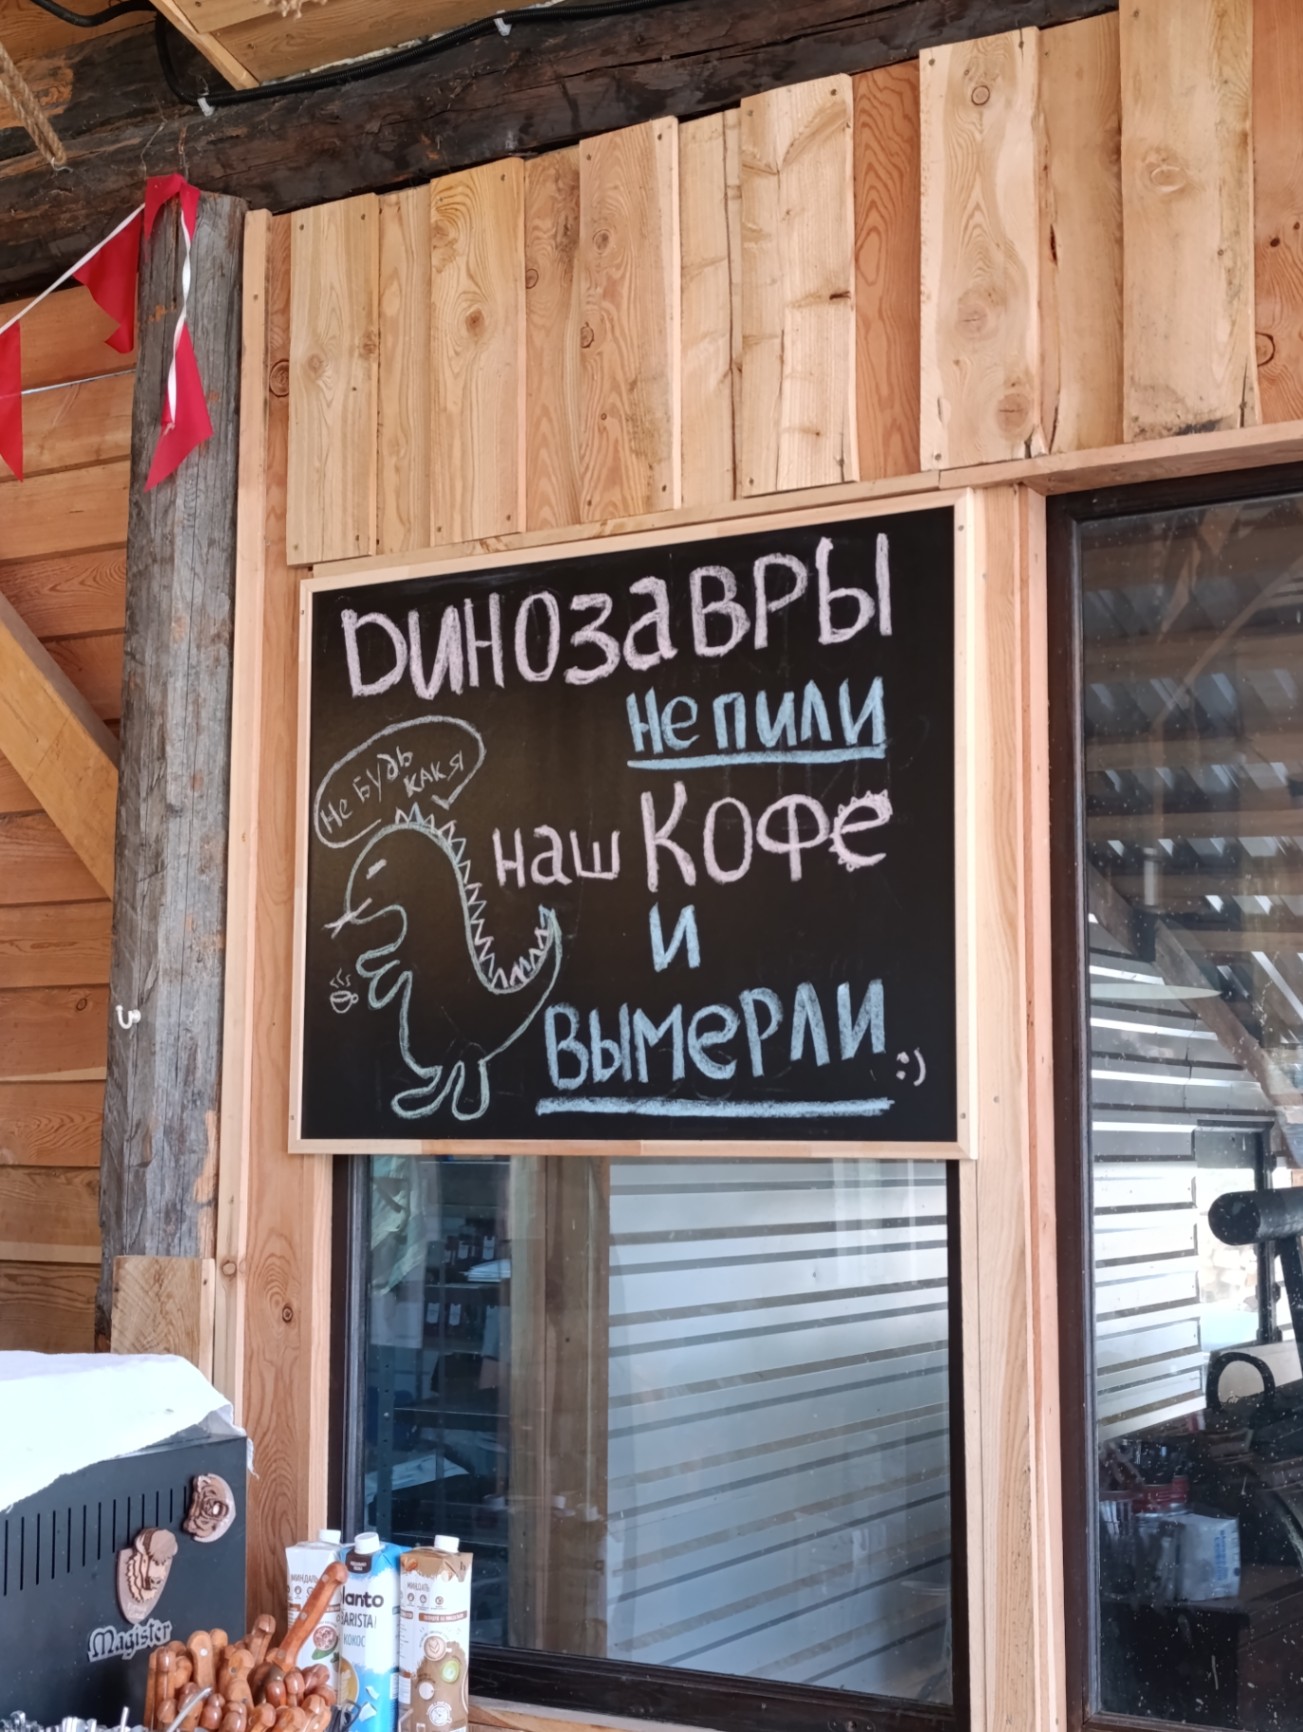 Динозавры
не пили
Не будь
как я
наш Кофе
и
вымерли :)
Magister
МИНДАЛЬ
lanto
BARISTA!
КОКОС
МИНДАЛЬ